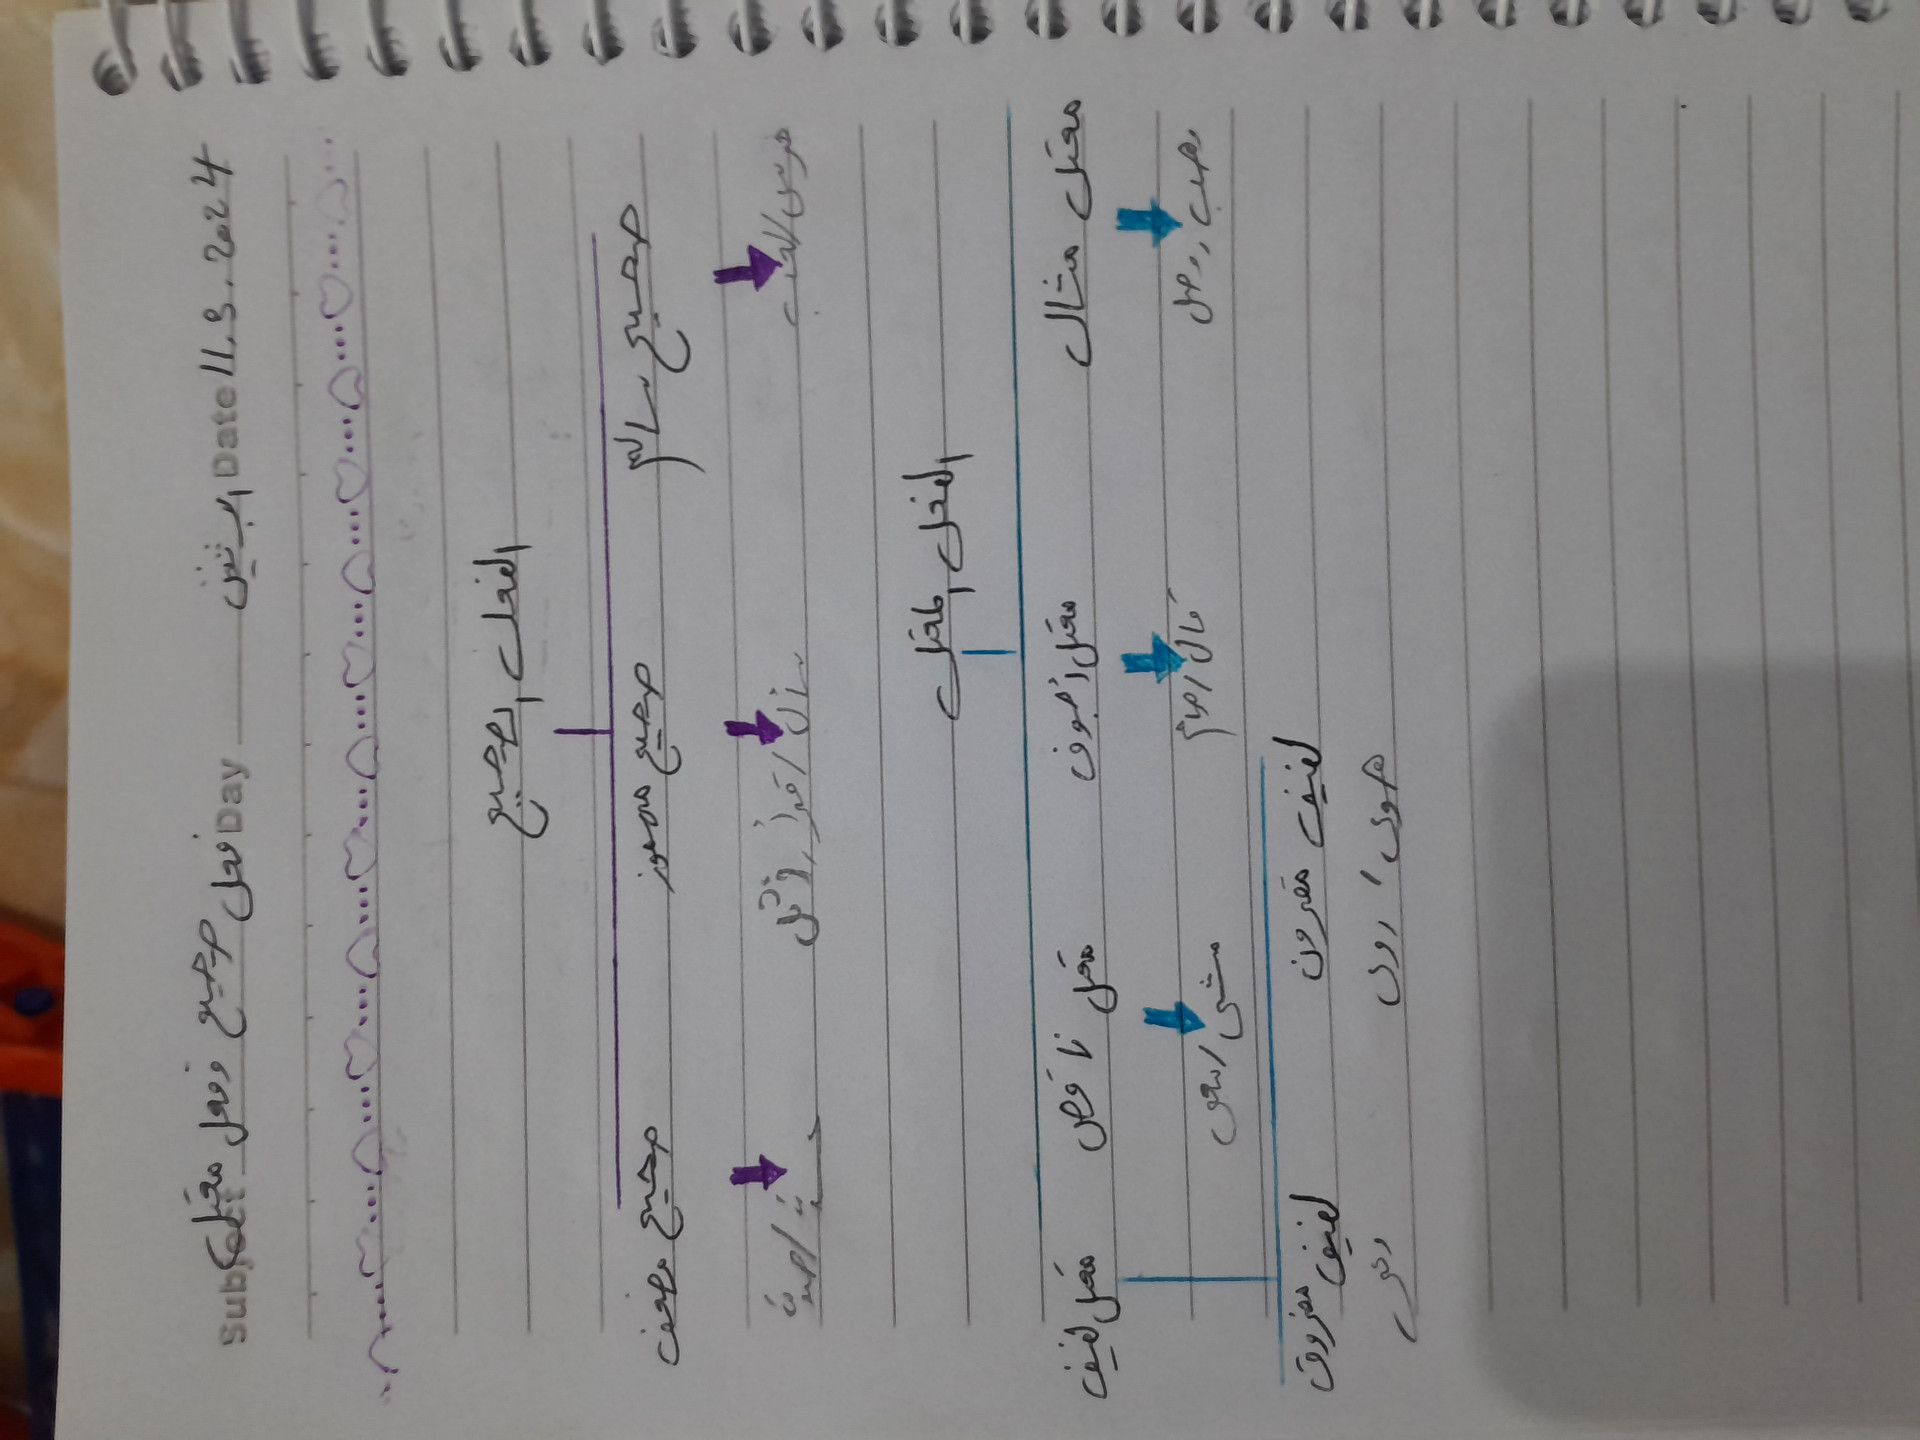 Subject فعل صحيح وفعل معتل Day الاثنين Date 11.3.2024
الفعل الصحيح
صحيح سالم صحيح مهموز صحيح مضعف
سأل / قرأ /
الفعل المعتل
معتل مثال معتل أجوف معتل ناقص معتل لفيف
قال / صام مشى / سعى
لفيف مقرون لفيف مفروق
هوى / روى